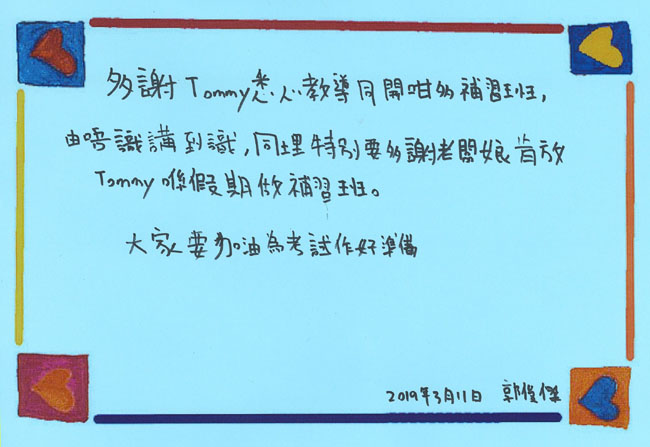 多謝Tommy悉心教導同開咁多補習班,
由唔識講到識,同埋特別要多謝老闆娘肯放
Tommy喺假期做補習班。
大家要加油為考試作好準備
2019年3月11日 郭俊傑